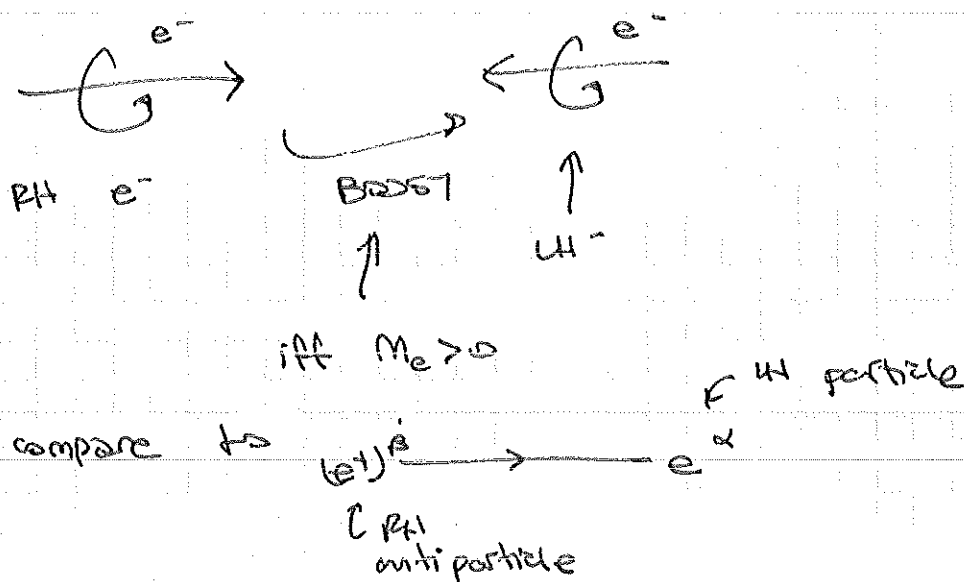 e⁻ e⁻
RH e⁻ BOOST LH⁻
iff Mₑ > 0
LH particle
compare to (e†)^β̇ e^α
RH
antiparticle